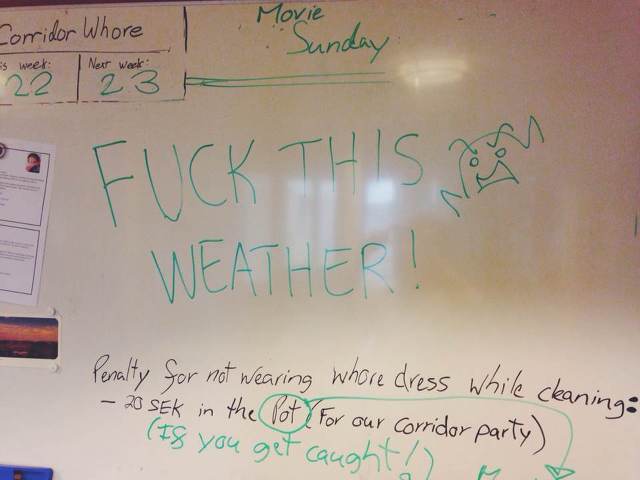 Corridor Whore
Movie
Sunday
is week:
Next week:
22
23
FUCK THIS
WEATHER!
Penalty for not wearing whore dress while cleaning:
- 20 SEK in the Pot (For our corridor party)
(If you get caught!)